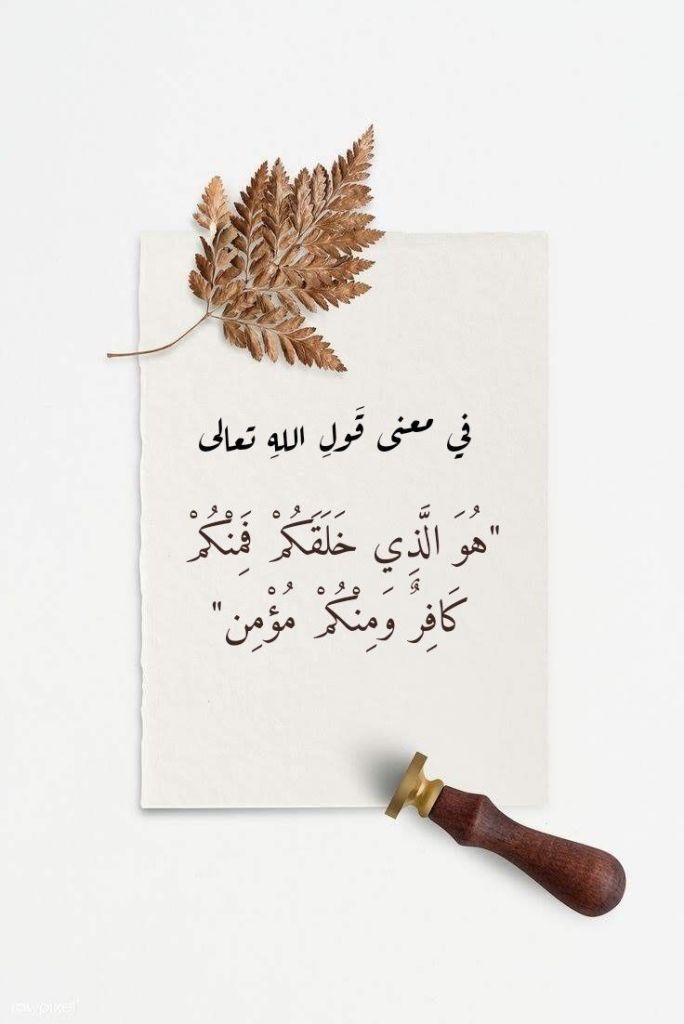 في معنى قَولِ اللهِ تعالى
"هُوَ الَّذِي خَلَقَكُمْ فَمِنْكُمْ
كَافِرٌ وَمِنْكُمْ مُؤْمِن"
rawpixel